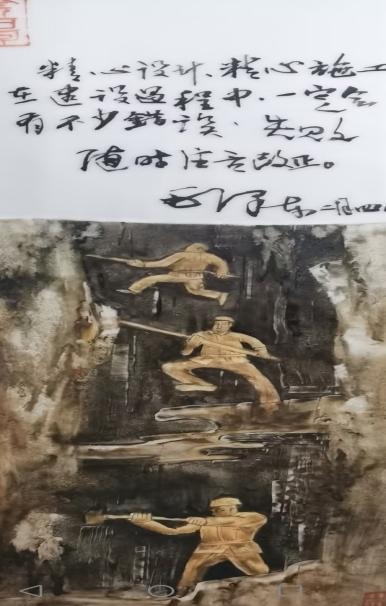 精心设计、精心施工
在建设过程中、一定会
有不少錯误、失败
随时注意改正。
毛泽东 二月四